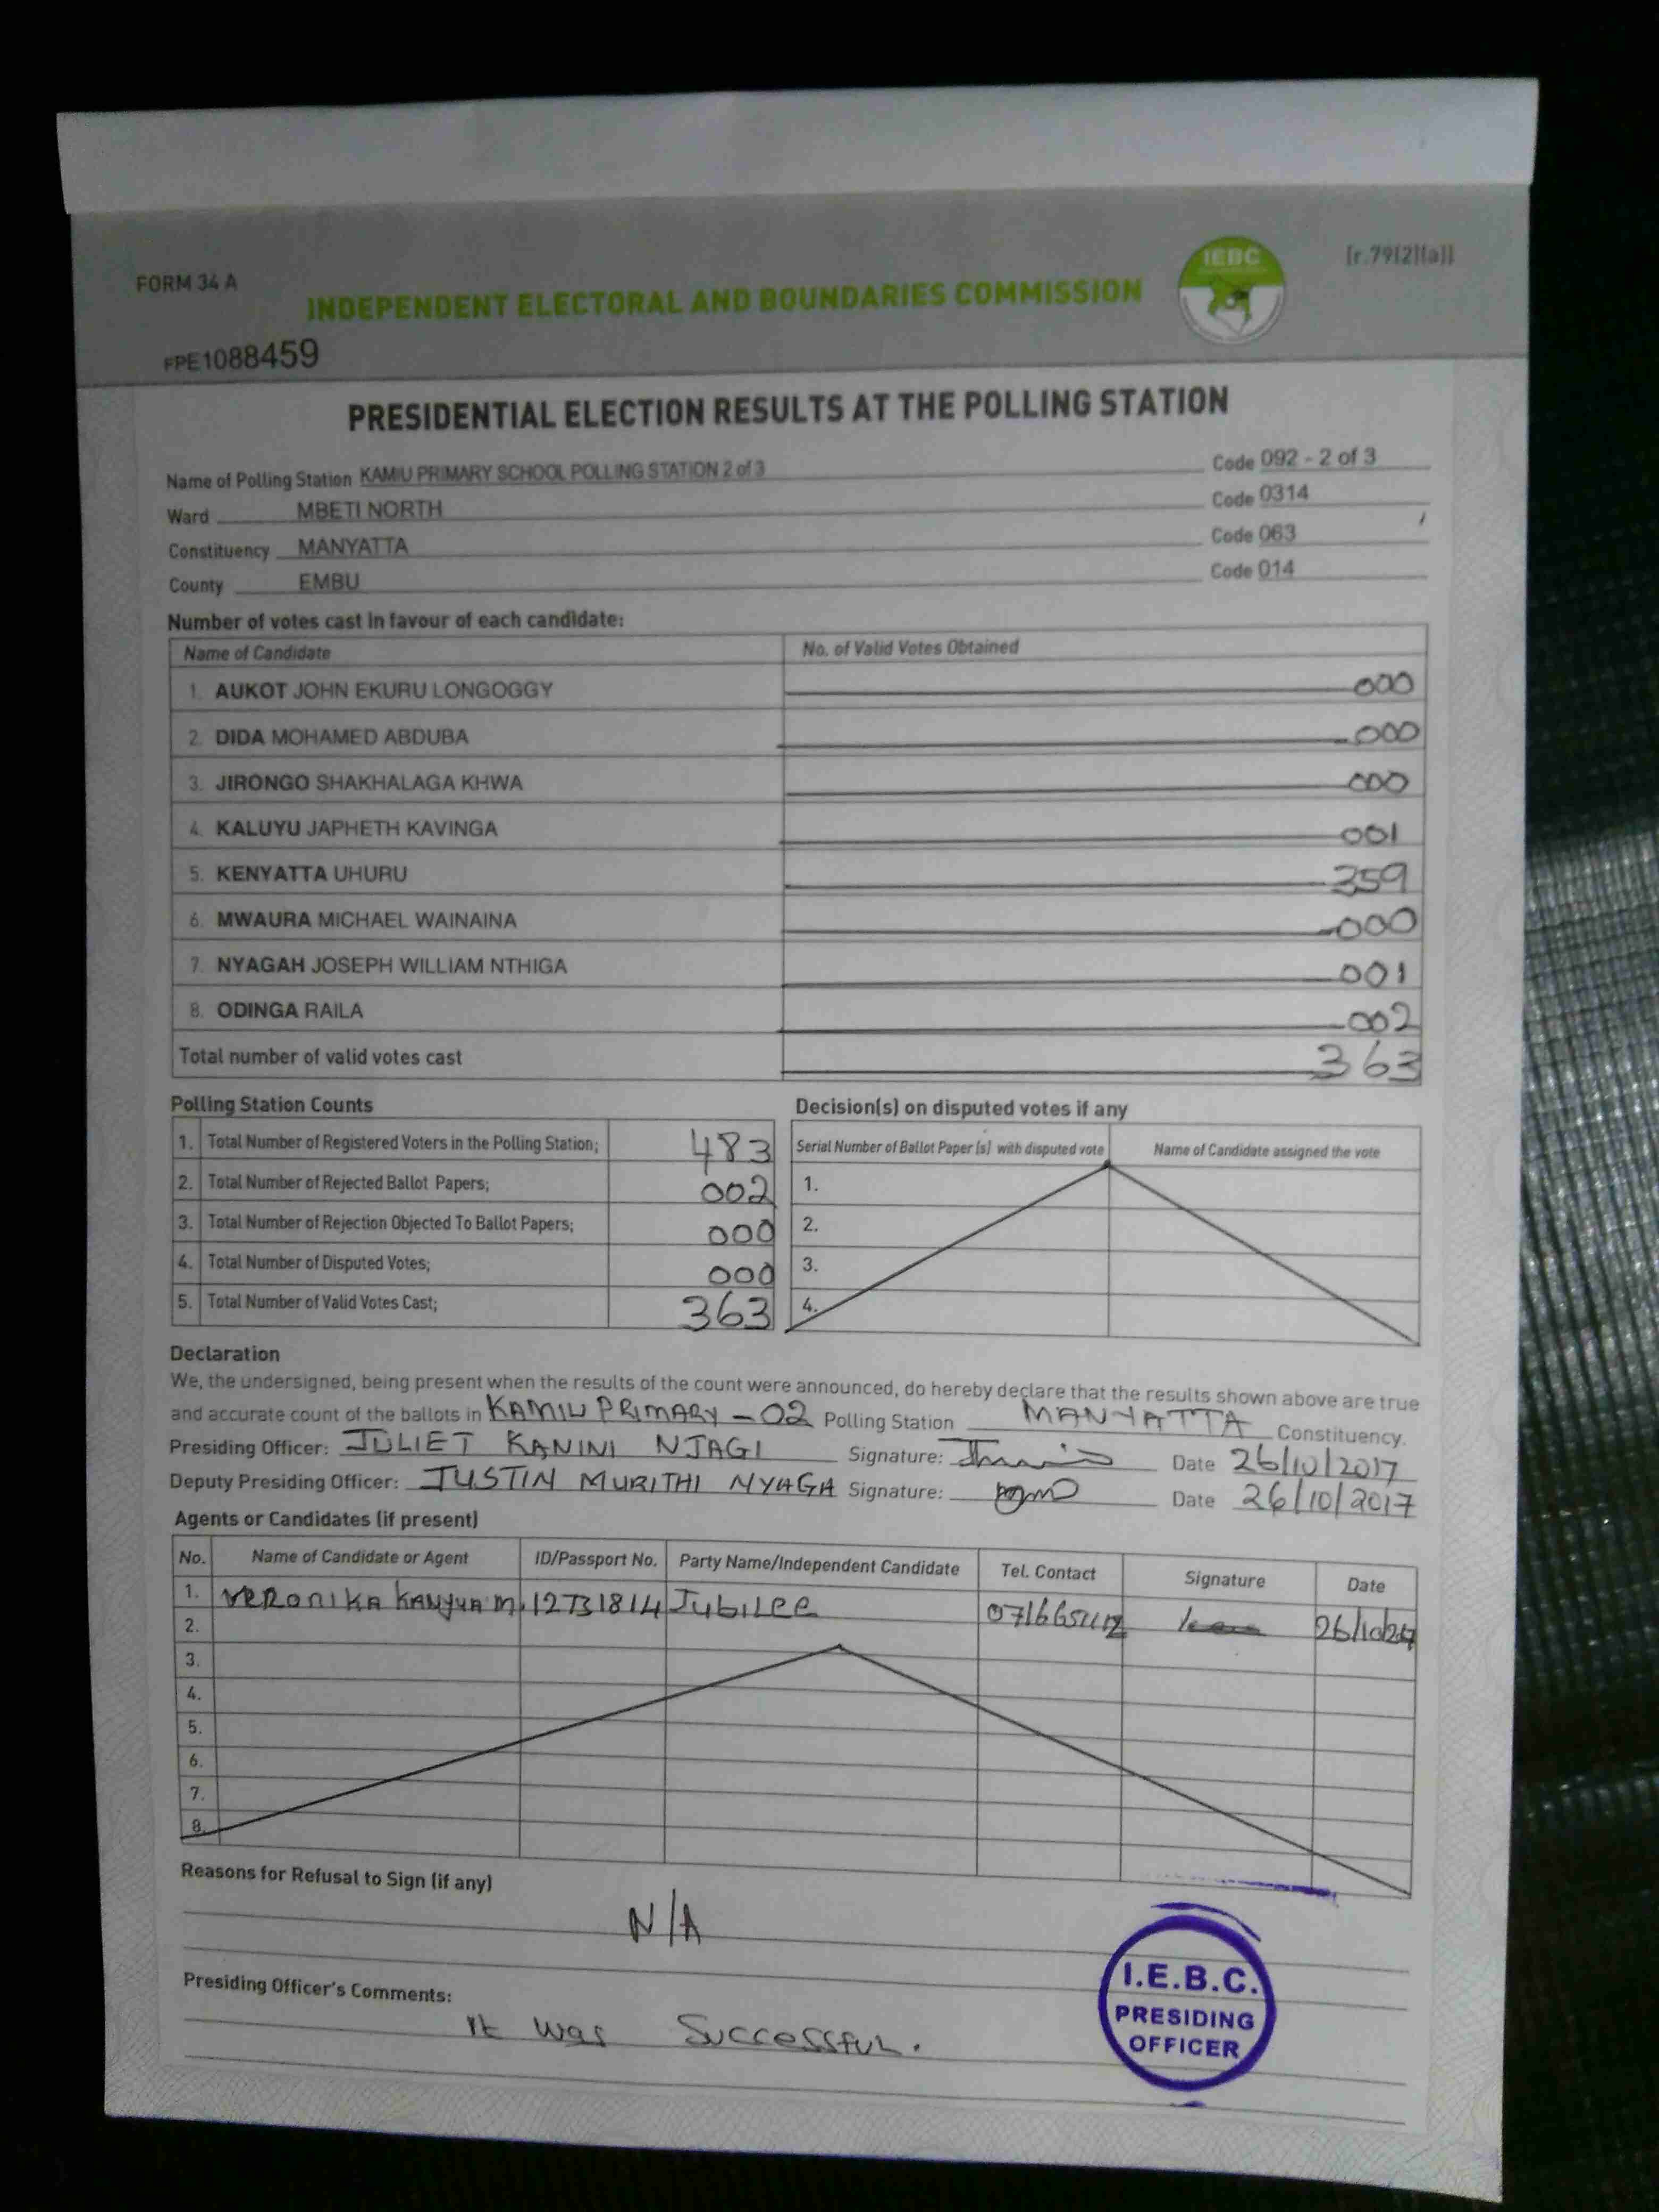 FORM 34 A
IEBC
[r.79(2)(a)]
INDEPENDENT ELECTORAL AND BOUNDARIES COMMISSION
FPE1088459
PRESIDENTIAL ELECTION RESULTS AT THE POLLING STATION
Name of Polling Station KAMIU PRIMARY SCHOOL POLLING STATION 2 of 3 Code 092 - 2 of 3
Ward MBETI NORTH Code 0314
Constituency MANYATTA Code 063
County EMBU Code 014
Number of votes cast in favour of each candidate:
Name of Candidate No. of Valid Votes Obtained
1. AUKOT JOHN EKURU LONGOGGY 000
2. DIDA MOHAMED ABDUBA 000
3. JIRONGO SHAKHALAGA KHWA 000
4. KALUYU JAPHETH KAVINGA 001
5. KENYATTA UHURU 359
6. MWAURA MICHAEL WAINAINA 000
7. NYAGAH JOSEPH WILLIAM NTHIGA 001
8. ODINGA RAILA 002
Total number of valid votes cast 363
Polling Station Counts
1. Total Number of Registered Voters in the Polling Station; 483
2. Total Number of Rejected Ballot Papers; 002
3. Total Number of Rejection Objected To Ballot Papers; 000
4. Total Number of Disputed Votes; 000
5. Total Number of Valid Votes Cast; 363
Decision(s) on disputed votes if any
Serial Number of Ballot Paper (s) with disputed vote Name of Candidate assigned the vote
1.
2.
3.
4.
Declaration
We, the undersigned, being present when the results of the count were announced, do hereby declare that the results shown above are true
and accurate count of the ballots in KAMIU PRIMARY - 02 Polling Station MANYATTA Constituency.
Presiding Officer: JULIET KANINI NJAGI Signature: Date 26/10/2017
Deputy Presiding Officer: JUSTIN MURITHI NYAGA Signature: Date 26/10/2017
Agents or Candidates (if present)
No. Name of Candidate or Agent ID/Passport No. Party Name/Independent Candidate Tel. Contact Signature Date
1. VERONIKA KANYUA M. Jubilee
2.
3.
4.
5.
6.
7.
8.
Reasons for Refusal to Sign (if any)
N/A
Presiding Officer's Comments:
It was Successful.
I.E.B.C.
PRESIDING
OFFICER